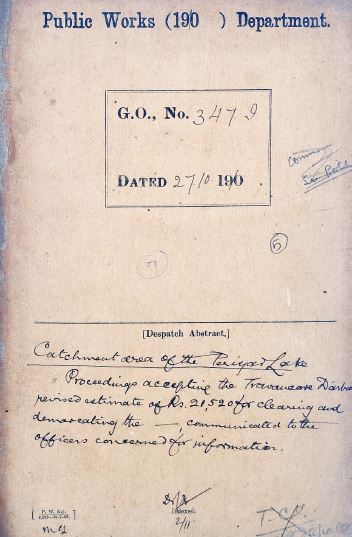 Public Works (190 ) Department.
G.O., No. 3479
DATED 27/10 190
5
7
[Despatch Abstract.]
Catchment area of the Periyar Lake
Proceedings accepting the Travancore Darbar
revised estimate of Rs. 21,520 for clearing and
demarcating the —, communicated to the
officers concerned for information.
Indexed.
2/11